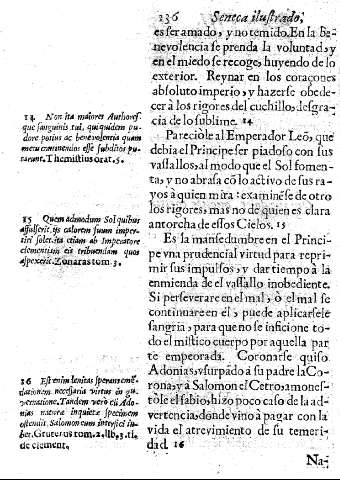 236 Seneca ilustrado,
es ser amado, y no temido. En la be-
nevolencia se prenda la voluntad, y
en el miedo se recoge, huyendo de lo
exterior. Reynar en los coraçones
absoluto imperio, y hazerse obede-
cer à los rigores del cuchillo, desgra-
cia de lo sublime. 14
Pareciòle al Emperador Leõ, que
debia el Principe ser piadoso con sus
vassallos, al modo que el Sol fomen-
ta, y no abrasa cõ lo activo de sus ra-
yos à quien mira: examinèse de otro
los rigores, mas no de quien es clara
antorcha de essos Cielos. 15
Es la mansedumbre en el Princi-
pe vna prudencial virtud para repri-
mir sus impulsos, y dar tiempo à la
enmienda de el vassallo inobediente.
Si perseverare en el mal, ò el mal se
continuare en èl, puede aplicarsele
sangria, para que no se inficione to-
do el mistico cuerpo por aquella par
te empeorada. Coronarse quiso
Adonias, vsurpãdo à su padre la Co-
rona, y à Salomon el Cetro; amones-
tòle el sabio; hizo poco caso de la ad-
vertencia, donde vino à pagar con la
vida el atrevimiento de su temeri-
dad. 16
Na-
14 Non ita maiores Authores-
que sanguinis tui, quiquidem pu-
dore potius ac benevolentia quam
metu continendos esse subditos pu-
tarunt. Themistius orat. 5.
15 Quemadmodum Sol quibus
affulserit, ijs calorem suum imper-
tiri solet, ita etiam ab Imperatore
clementiam eis tribuendam quos
aspexerit. Zonaras tom. 3.
16 Est enim lenitas sperans emẽ-
dationem necessaria virtus in gu-
vernatione. Tandem verò cùm Ado-
nias naturæ inquietæ specimen
ostendit, Salomon eum interfici iu-
bet. Gruterus tom. 2. lib. 3. tit.
de clement.